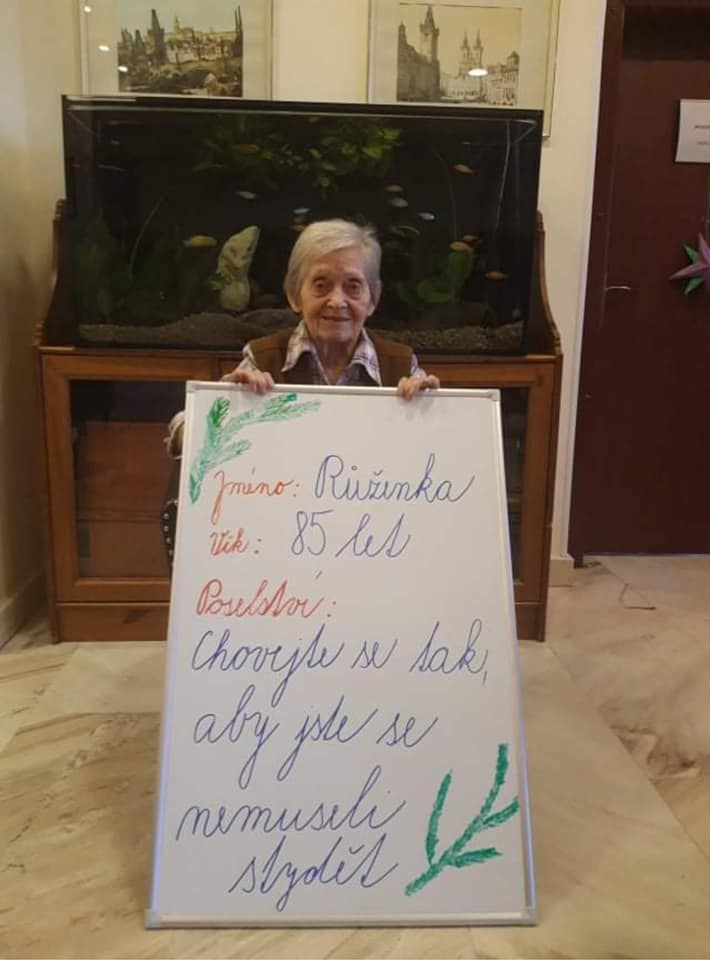 Jméno: Růženka
Věk: 85 let
Poselství:
Chovejte se tak,
aby jste se
nemuseli
stydět